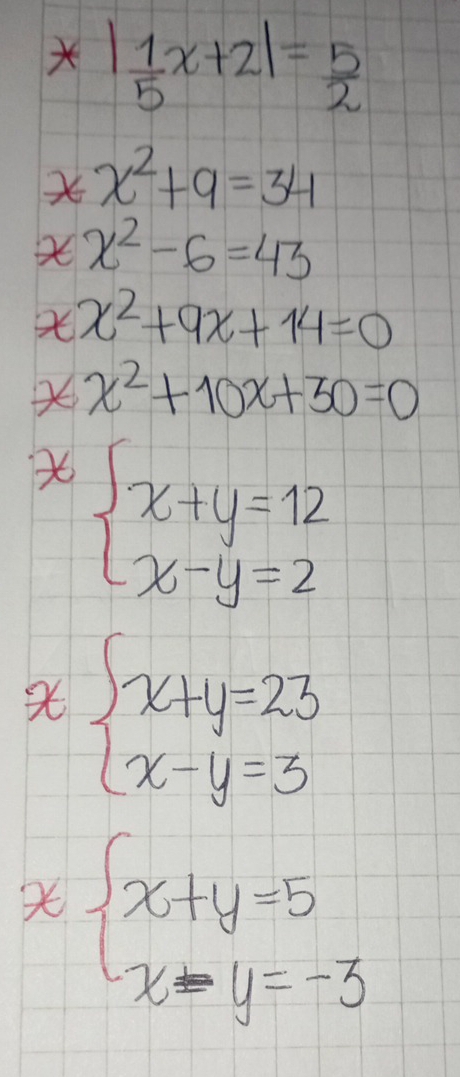 * |1/5x+2| = 5/2
* x²+9=34
* x²-6=43
* x²+9x+14=0
* x²+10x+30=0
* { x+y=12
x-y=2
* { x+y=23
x-y=3
* { x+y=5
x-y=-3